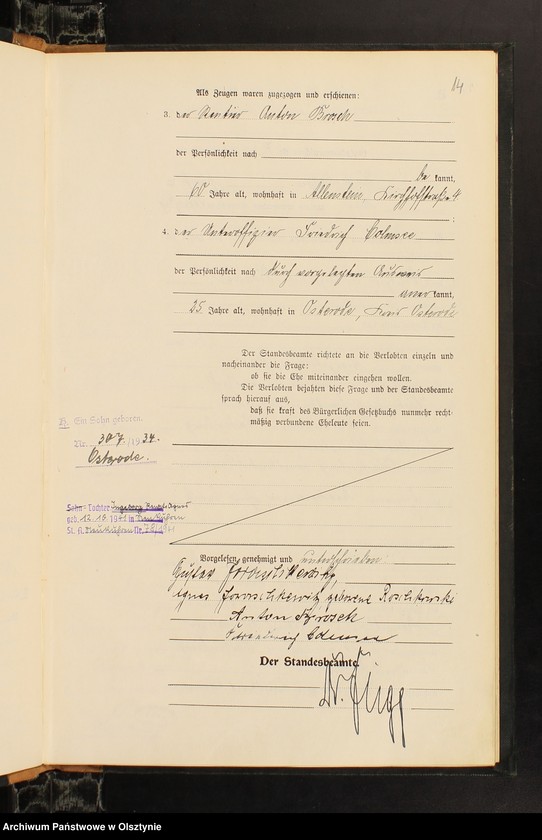 14
Als Zeugen waren zugezogen und erschienen:
3. der Rentier Anton Brosch
der Persönlichkeit nach
be kannt,
60 Jahre alt, wohnhaft in Allenstein, Kirchhofstraße 4
;
4. der Unteroffizier Friedrich
der Persönlichkeit nach durch vorgelegten Ausweis
aner kannt,
25 Jahre alt, wohnhaft in Osterode, Kreis Osterode
Der Standesbeamte richtete an die Verlobten einzeln und
nacheinander die Frage:
ob sie die Ehe miteinander eingehen wollen.
Die Verlobten bejahten diese Frage und der Standesbeamte
sprach hierauf aus,
daß sie kraft des Bürgerlichen Gesetzbuchs nunmehr recht-
mäßig verbundene Eheleute seien.
B. Ein Sohn geboren.
Nr. 307/1934.
Osterode.
Sohn-Tochter Ingeborg
geb. 12.10.19 in
St. A. Nr.
Vorgelesen, genehmigt und unterschrieben
Gustav
Agnes geborene
Anton Brosch
Friedrich
Der Standesbeamte.
Dr.
Archiwum Państwowe w Olsztynie